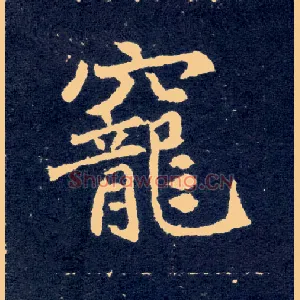 竉
Shufawang.CN